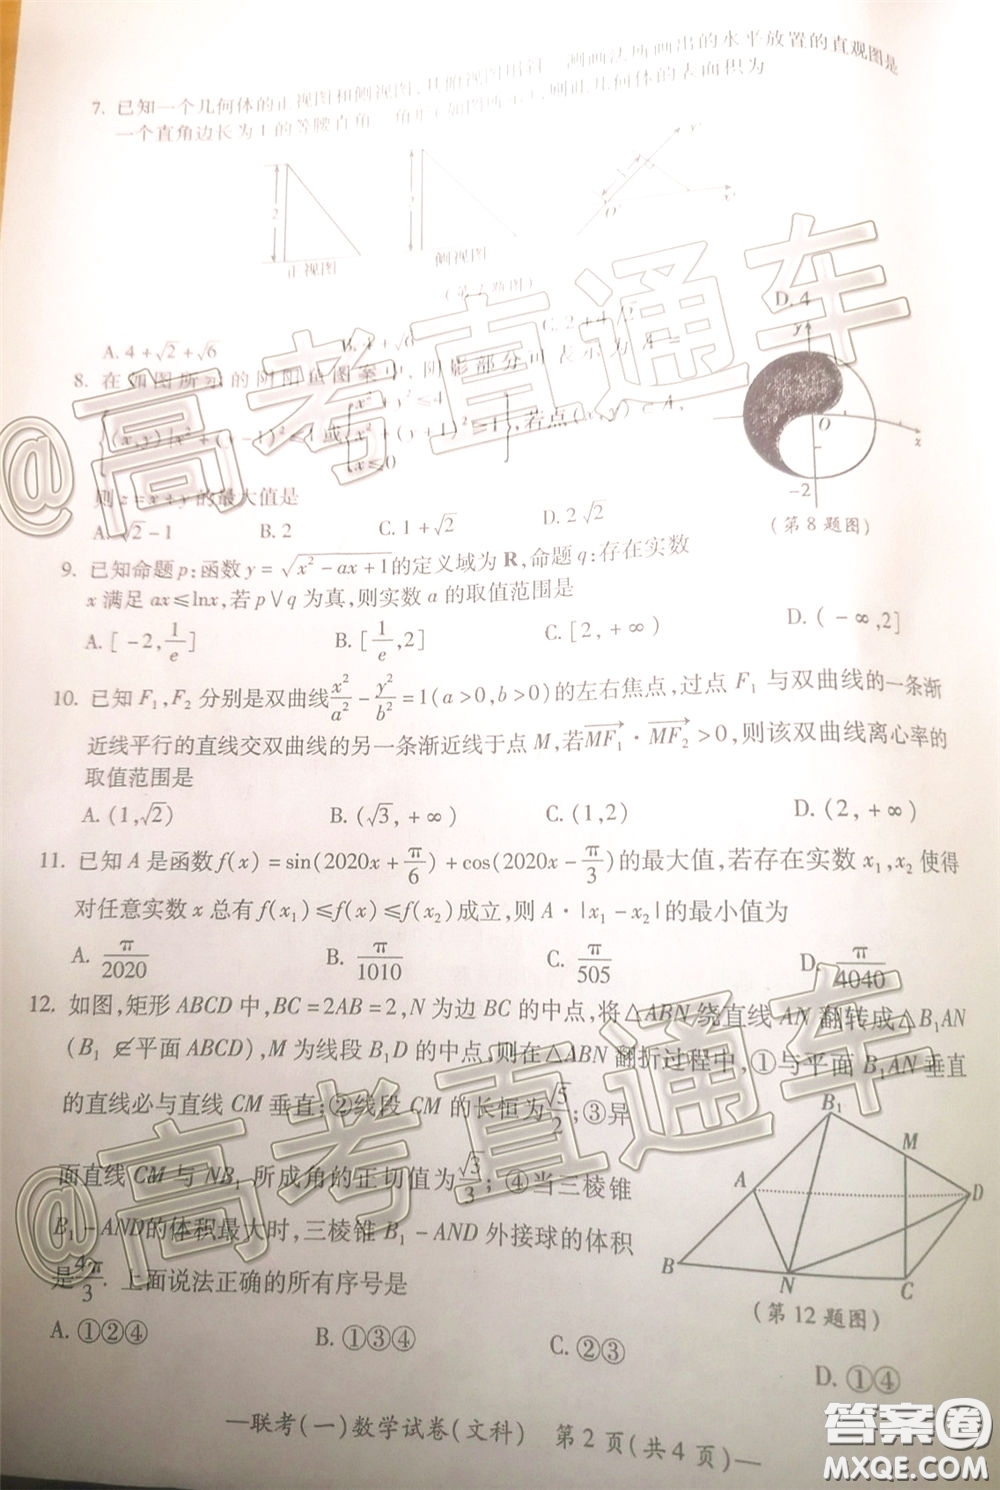 7. 已知一个几何体的正视图和侧视图,其俯视图用斜二测画法所画出的水平放置的直观图是
一个直角边长为1的等腰直角三角形(如图所示),则此几何体的表面积为
2
2
y'
O'
x'
正视图
侧视图
(第7题图)
A. 4+√2+√6
C. 2+4√2
D. 4
8. 在如图所示的阴阳鱼图案中,阴影部分可表示为A=
{(x,y)|x²+(y-1)²≤1或{x²+y²≤4 x²+(y+1)²≥1 x≤0},若点(x,y)∈A,
则z=x+y的最大值是
A. √2-1 B. 2 C. 1+√2 D. 2√2
y
O
x
-2
(第8题图)
9. 已知命题p:函数y=√(x²-ax+1)的定义域为R,命题q:存在实数
x满足ax≤lnx,若p∨q为真,则实数a的取值范围是
A. [-2,1/e] B. [1/e,2] C. [2,+∞) D. (-∞,2]
10. 已知F₁,F₂分别是双曲线x²/a²-y²/b²=1(a>0,b>0)的左右焦点,过点F₁与双曲线的一条渐
近线平行的直线交双曲线的另一条渐近线于点M,若MF₁·MF₂>0,则该双曲线离心率的
取值范围是
A. (1,√2) B. (√3,+∞) C. (1,2) D. (2,+∞)
11. 已知A是函数f(x)=sin(2020x+π/6)+cos(2020x-π/3)的最大值,若存在实数x₁,x₂使得
对任意实数x总有f(x₁)≤f(x)≤f(x₂)成立,则A·|x₁-x₂|的最小值为
A. π/2020 B. π/1010 C. π/505 D. π/4040
12. 如图,矩形ABCD中,BC=2AB=2,N为边BC的中点,将△ABN绕直线AN翻转成△B₁AN
(B₁∉平面ABCD),M为线段B₁D的中点,则在△ABN翻折过程中,①与平面B₁AN垂直
的直线必与直线CM垂直;②线段CM的长恒为√5/2;③异
面直线CM与NB₁所成角的正切值为√3/3;④当三棱锥
B₁-AND的体积最大时,三棱锥B₁-AND外接球的体积
是4π/3. 上面说法正确的所有序号是
B₁
M
A
D
B
N
C
(第12题图)
A. ①②④ B. ①③④ C. ②③ D. ①④
—联考(一)数学试卷(文科) 第2页(共4页)—
@高考直通车
@高考直通车
答案圈
MXQE.COM